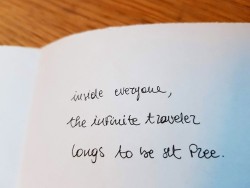 inside everyone,
the infinite traveler
longs to be set free.